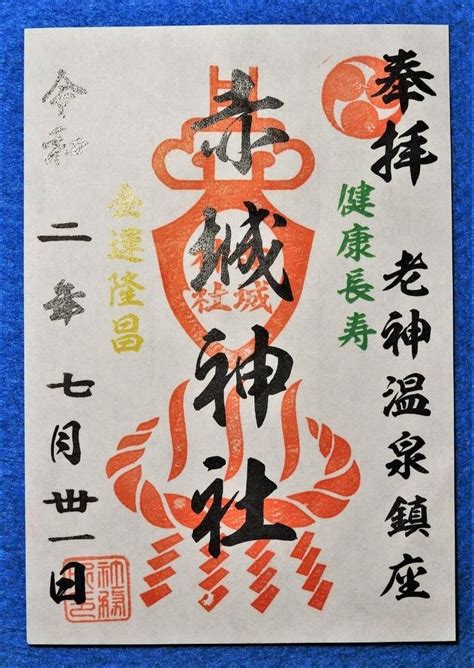 奉拝 老神温泉鎮座
健康長寿
赤城神社
金運隆昌
令和二年七月丗一日